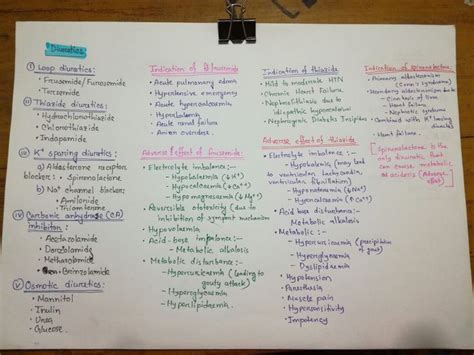 Diuretics
① Loop diuretics:
• Frusemide/Furosemide
• Torsemide
② Thiazide diuretics:
• Hydrochlorothiazide
• Chlorothiazide
• Indapamide
③ K+ sparing diuretics:
a) Aldosterone receptor
blockers:
• Spironolactone
b) Na+ channel blocker:
• Amiloride
• Triamterene
④ Carbonic anhydrase (CA)
inhibitors:
• Acetazolamide
• Dorzolamide
• Methazolamide
• Brinzolamide
⑤ Osmotic diuretics:
• Mannitol
• Inulin
• Urea
• Glucose
Indication of
• Acute pulmonary edema
• Hypertensive emergency
• Acute hypercalcaemia
• Hyperkalemia
• Acute renal failure
• Anion overdose
Adverse effect of frusemide:
• Electrolyte imbalance:-
- Hypokalaemia (↓K+)
- Hypocalcaemia (↓Ca++)
- Hypomagnesaemia (↓Mg++)
• Reversible ototoxicity (due to
inhibition of symport mechanism
• Hypovolaemia
• Acid-base imbalance:-
- Metabolic alkalosis
• Metabolic disturbance:-
- Hyperuricaemia (leading to
gouty attack)
- Hyperglycaemia
- Hyperlipidaemia
Indication of thiazide
• Mild to moderate HTN
• Chronic Heart Failure
• Nephrolithiasis due to
idiopathic hypercalciuria
• Nephrogenic Diabetes Insipidus
Adverse effect of thiazide
• Electrolyte imbalance:-
- Hypokalemia (may lead
to ventricular tachycardia,
ventricular fibrillation)
- Hyponatraemia (↓Na+)
- Hypercalcaemia (↑Ca++)
• Acid base disturbance:-
Metabolic alkalosis
• Metabolic:-
- Hyperuricaemia (precipitation
of gout)
- Hyperglycaemia
- Dyslipidaemia
• Hypotension
• Parasthesia
• Muscle pain
• Hypersensitivity
• Impotency
Indication of Spironolactone
• Primary aldosteronism
(Conn's syndrome)
• Secondary aldosteronism due to
- Cirrhosis of liver
- Heart failure
- Nephrotic syndrome
• Combined with K+ losing
diuretics
Heart failure.
[Spironolactone is the
only diuretic that
can cause metabolic
acidosis (Adverse
effect)]